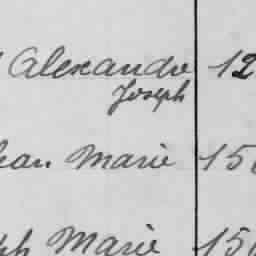 Alexandre 12
Joseph
Jean Marie 15
ph Marie 15